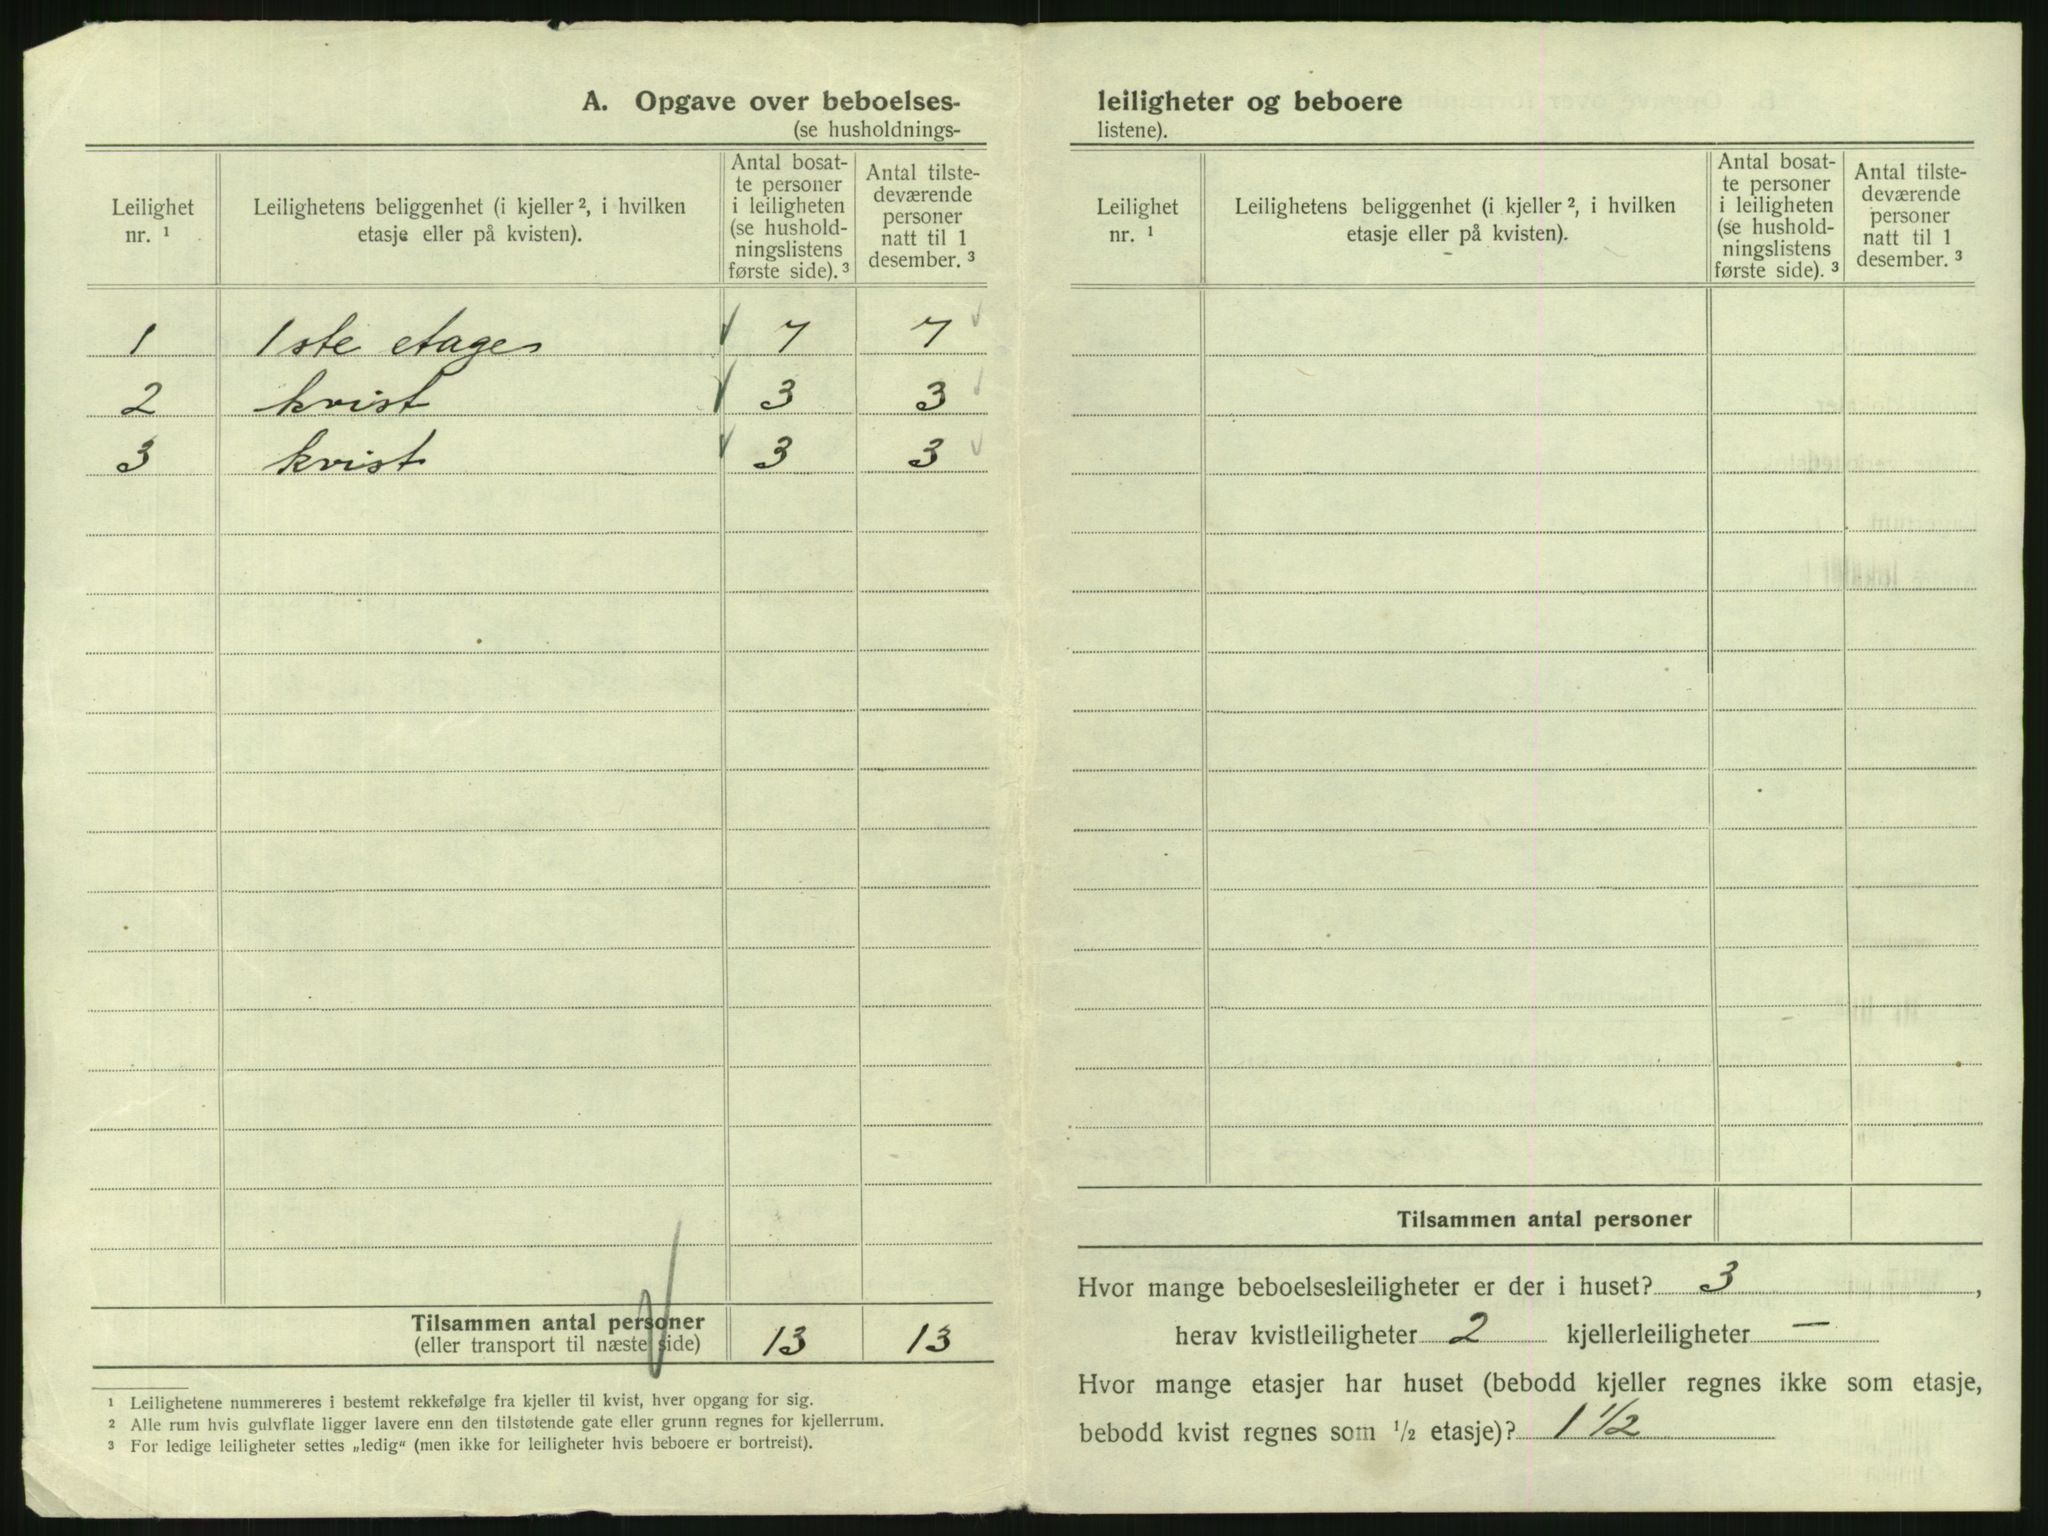 A. Opgave over beboelses-
(se husholdnings-
Leilighet
nr. ¹
Leilighetens beliggenhet (i kjeller ², i hvilken
etasje eller på kvisten).
Antal bosat-
te personer
i leiligheten
(se hushold-
ningslistens
første side). ³
Antal tilste-
deværende
personer
natt til 1
desember. ³
1 1ste etage 7 7
2 kvist 3 3
3 kvist 3 3
Tilsammen antal personer
(eller transport til næste side) 13 13
¹ Leilighetene nummereres i bestemt rekkefølge fra kjeller til kvist, hver opgang for sig.
² Alle rum hvis gulvflate ligger lavere enn den tilstøtende gate eller grunn regnes for kjellerrum.
³ For ledige leiligheter settes „ledig“ (men ikke for leiligheter hvis beboere er bortreist).
leiligheter og beboere
listene).
Leilighet
nr. ¹
Leilighetens beliggenhet (i kjeller ², i hvilken
etasje eller på kvisten).
Antal bosat-
te personer
i leiligheten
(se hushold-
ningslistens
første side). ³
Antal tilste-
deværende
personer
natt til 1
desember. ³
Tilsammen antal personer
Hvor mange beboelsesleiligheter er der i huset? 3 ,
herav kvistleiligheter 2 kjellerleiligheter —
Hvor mange etasjer har huset (bebodd kjeller regnes ikke som etasje,
bebodd kvist regnes som ½ etasje)? 1 ½